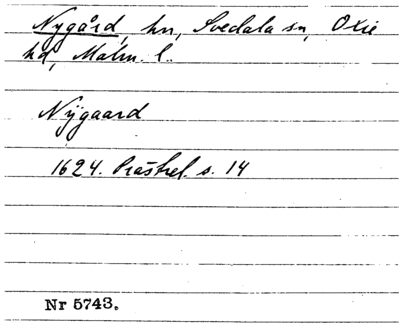 Nygård, hn, Svedala sn, Oxie
hd, Malm. l.
Nÿgaard
1624. Prästrel. s. 14
Nr 5743.